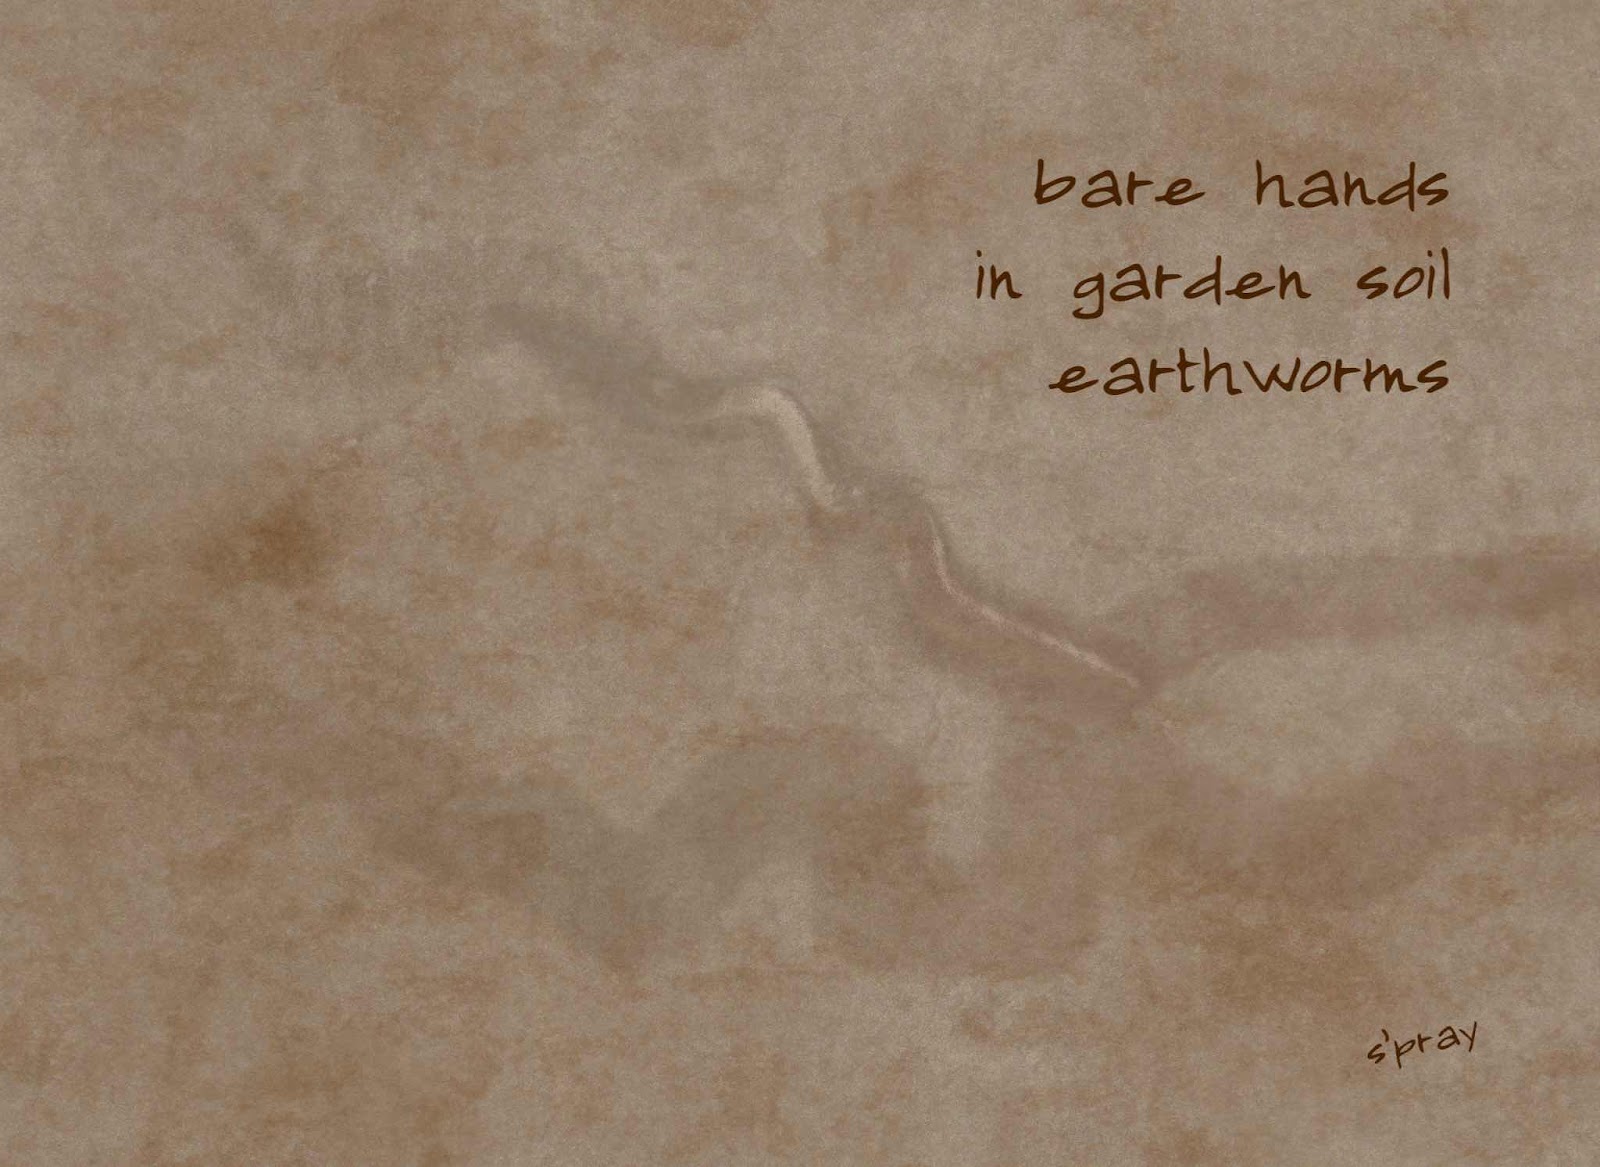 bare hands
in garden soil
earthworms
s'pray